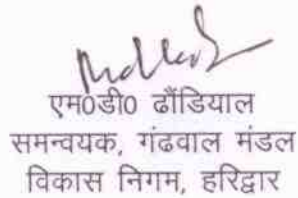 एम0डी0 ढौंडियाल
समन्वयक, गंढवाल मंडल
विकास निगम, हरिद्वार